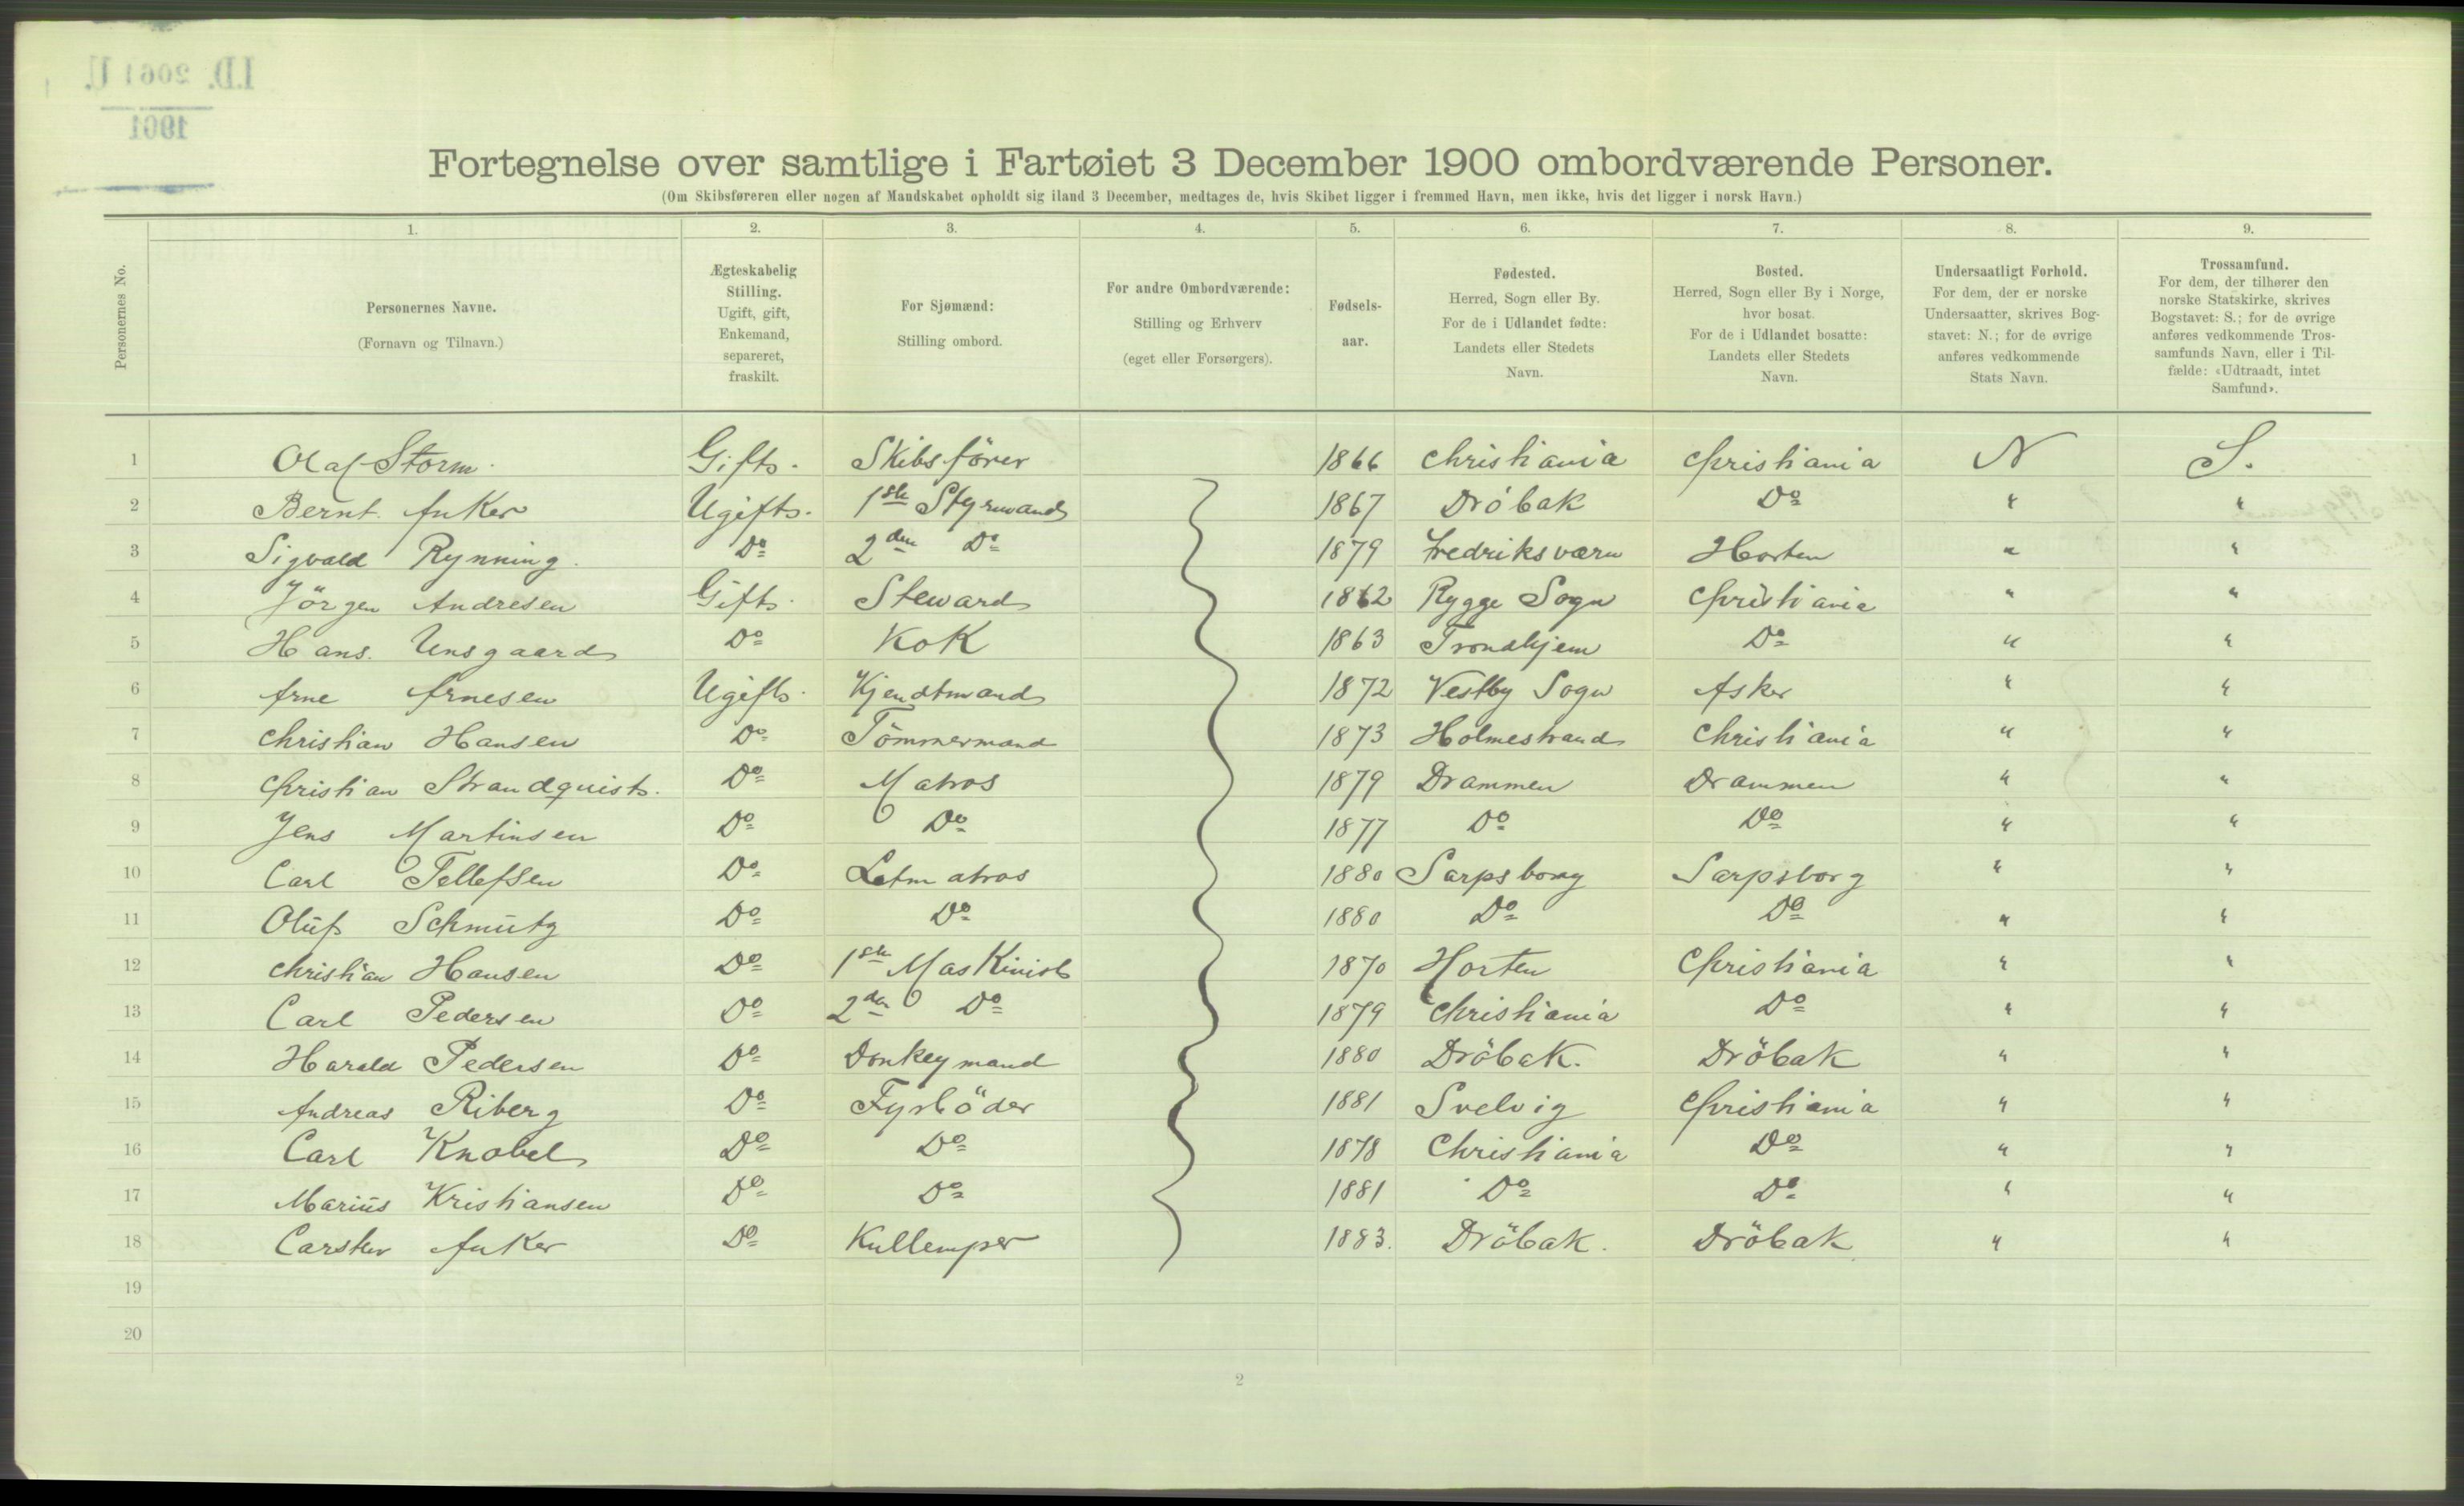 I.D. 2061 U.
1901
Fortegnelse over samtlige i Fartøiet 3 December 1900 ombordværende Personer.
(Om Skibsføreren eller nogen af Mandskabet opholdt sig iland 3 December, medtages de, hvis Skibet ligger i fremmed Havn, men ikke, hvis det ligger i norsk Havn.)
Personernes No.
1. 2. 3. 4. 5. 6. 7. 8. 9.
Personernes Navne.
(Fornavn og Tilnavn.)
Ægteskabelig
Stilling.
Ugift, gift,
Enkemand,
separeret,
fraskilt.
For Sjømænd:
Stilling ombord.
For andre Ombordværende:
Stilling og Erhverv
(eget eller Forsørgers).
Fødsels-
aar.
Fødested.
Herred, Sogn eller By.
For de i Udlandet fødte:
Landets eller Stedets
Navn.
Bosted.
Herred, Sogn eller By i Norge,
hvor bosat.
For de i Udlandet bosatte:
Landets eller Stedets
Navn.
Undersaatligt Forhold.
For dem, der er norske
Undersaatter, skrives Bog-
stavet: N.; for de øvrige
anføres vedkommende
Stats Navn.
Trossamfund.
For dem, der tilhører den
norske Statskirke, skrives
Bogstavet: S.; for de øvrige
anføres vedkommende Tros-
samfunds Navn, eller i Til-
fælde: «Udtraadt, intet
Samfund».
1 Olaf Storm. Gift. Skibsförer 1866 Christiania Christiania N S.
2 Bernt Anker Ugift. 1ste Styrmand 1867 Dröbak Do " "
3 Sigvald Rynning. Do 2den Do 1879 Fredriksværn Horten " "
4 Jörgen Andresen Gift. Steward 1862 Rygge Sogn Christiania " "
5 Hans. Unsgaard Do Kok 1863 Trondhjem Do " "
6 Arne Arnesen Ugift. Kjendtmand 1872 Vestby Sogn Asker " "
7 Christian Hansen Do Tömmermand 1873 Holmestrand Christiania " "
8 Christian Strandquist. Do Matros 1879 Drammen Drammen " "
9 Jens Martinsen Do Do 1877 Do Do " "
10 Carl Tellefsen Do Letmatros 1880 Sarpsborg Sarpsborg " "
11 Oluf Schmutz Do Do 1880 Do Do " "
12 Christian Hansen Do 1ste Maskinist 1870 Horten Christiania " "
13 Carl Pedersen Do 2den Do 1879 Christiania Do " "
14 Harald Pedersen Do Donkeymand 1880 Dröbak. Dröbak " "
15 Andreas Riberg Do Fyrböder 1881 Svelvig Christiania " "
16 Carl Knobel Do Do 1878 Christiania Do " "
17 Marius Kristiansen Do Do 1881 Do Do " "
18 Carsten Anker Do Kullemper 1883. Dröbak. Dröbak " "
19
20
2